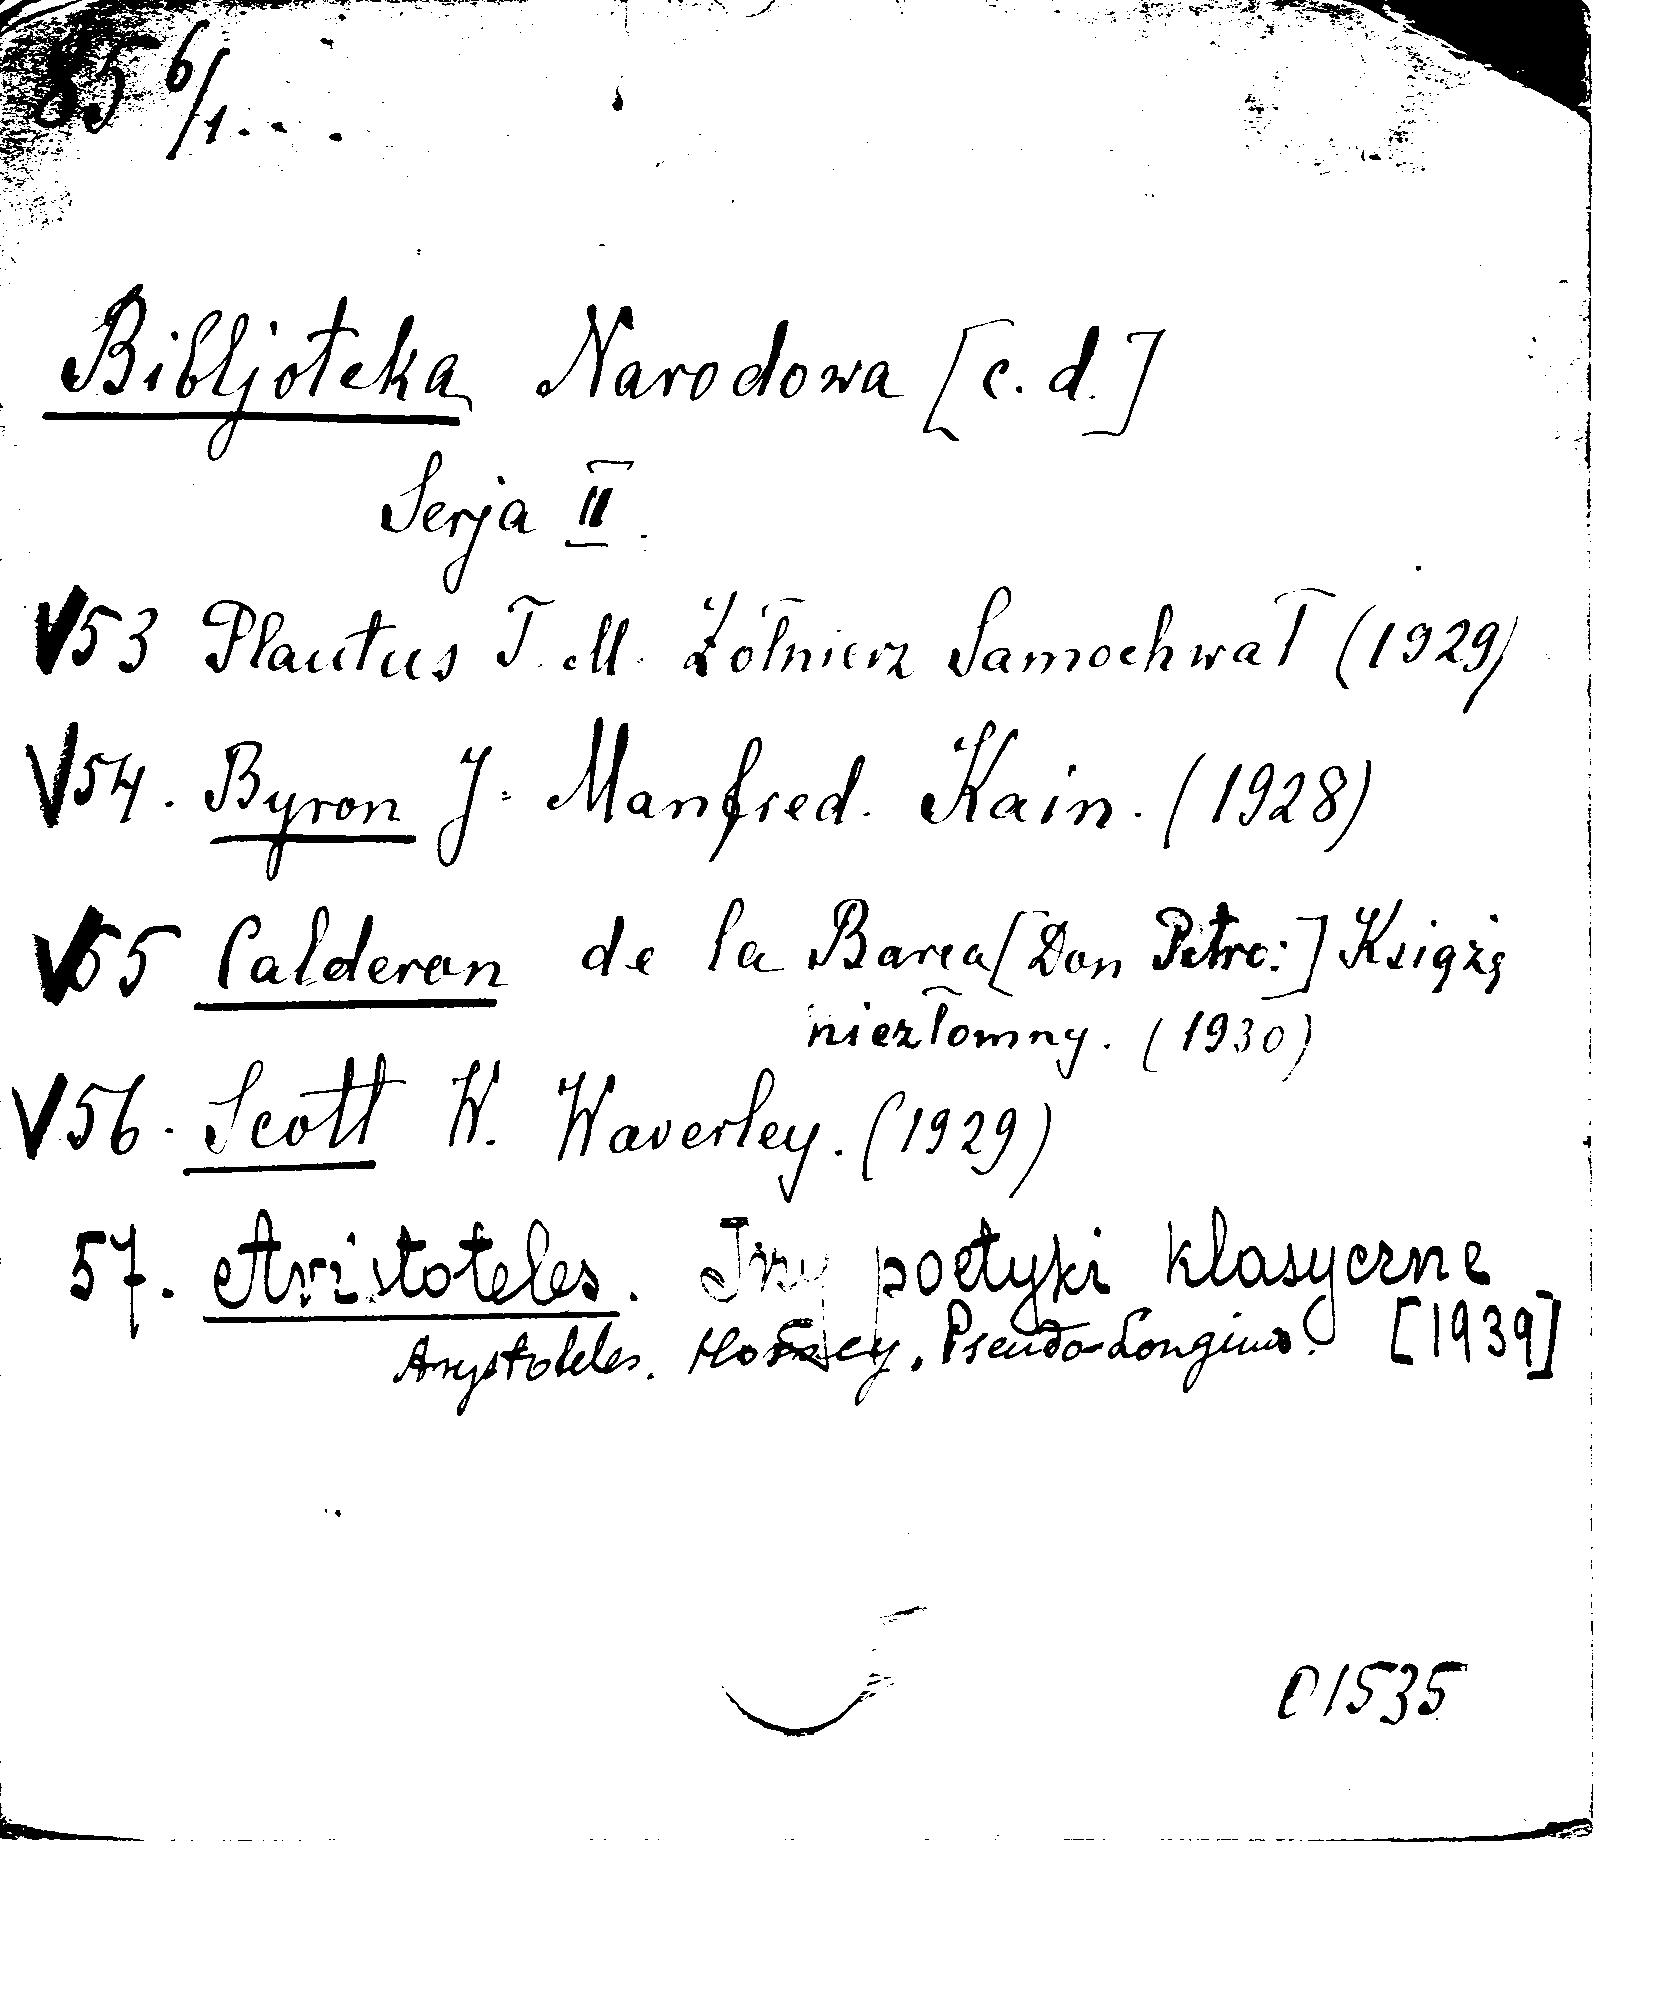 85 6/1...
Bibljoteka Narodowa [c. d.]
Serja II.
V 53 Plautus T. M. Żołnierz Samochwał (1929)
V 54. Byron J. Manfred. Kain. (1928)
V 55 Calderon de la Barca [Don Petro:] Książę
niezłomny. (1930)
V 56. Scott W. Waverley. (1929)
57. Aristoteles. Trzy poetyki klasyczne
Arystoteles. Horacy. Pseudo-Longinos. [1939]
C1535